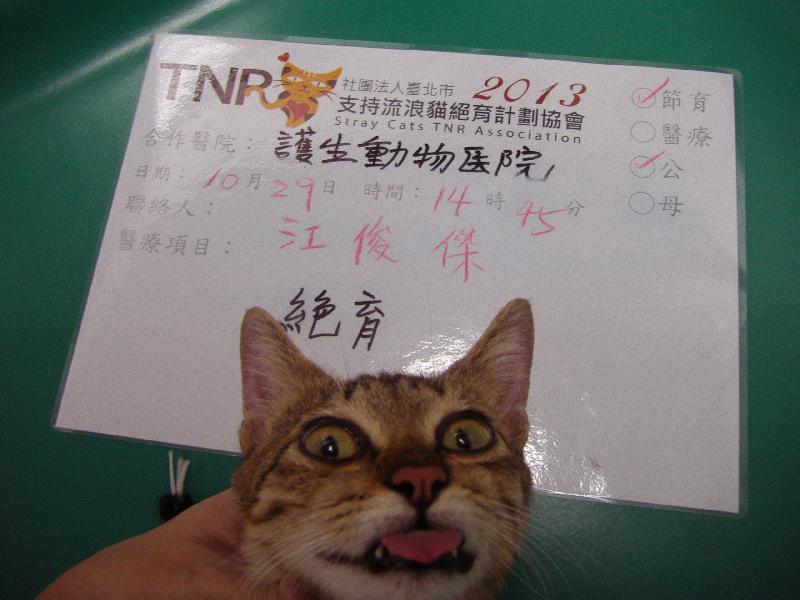 TNR 社團法人臺北市 2013
支持流浪貓絕育計劃協會
Stray Cats TNR Association
節育
醫療
公
母
合作醫院：護生動物医院
日期：10月29日 時間：14時45分
聯絡人：江俊傑
醫療項目：
絕育